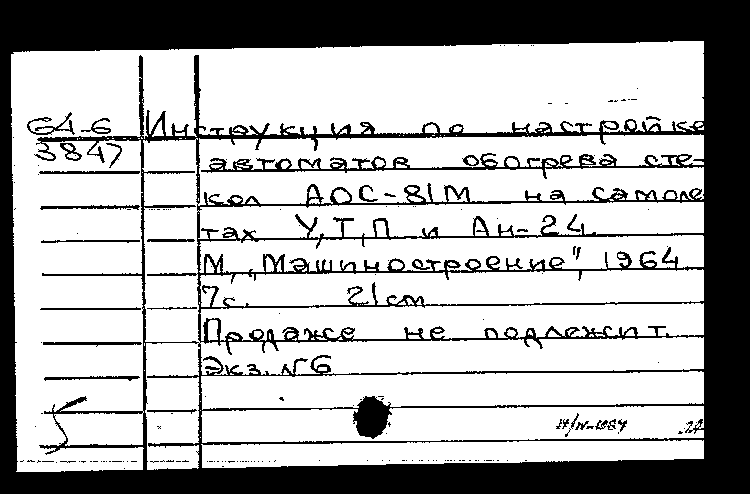 64-6 Инструкция по настройке
3847 автоматов обогрева сте-
кол АОС-81М на самоле
тах У, Т, П и Ан-24.
М., „Машиностроение", 1964.
7с. 21см
Продаже не подлежит.
Экз. №6
5